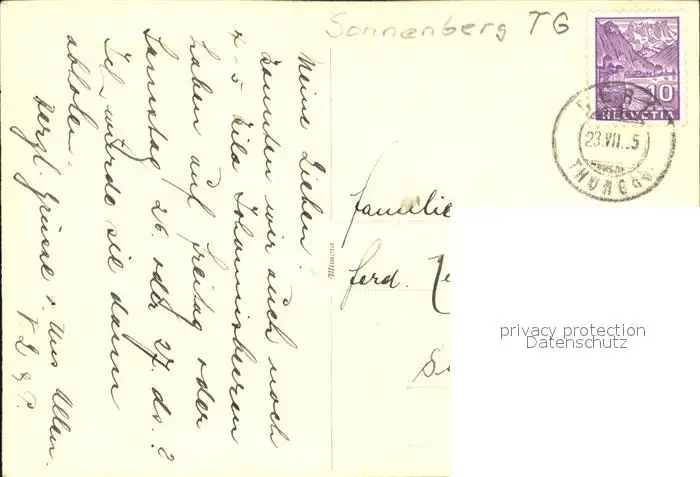 Sonnenberg TG
10
HELVETIA
23.VII. 5
THURGAU
Meine Lieben!
Könnten wir auch noch
4-5 Kilo Johannisbeeren
haben auf Freitag oder
Samstag 26. oder 27. ds.?
Ich würde sie dann
abholen.
Herzl. Grüsse v. Uns Allen.
V. L & P.
Familie
Ferd.
privacy protection
Datenschutz